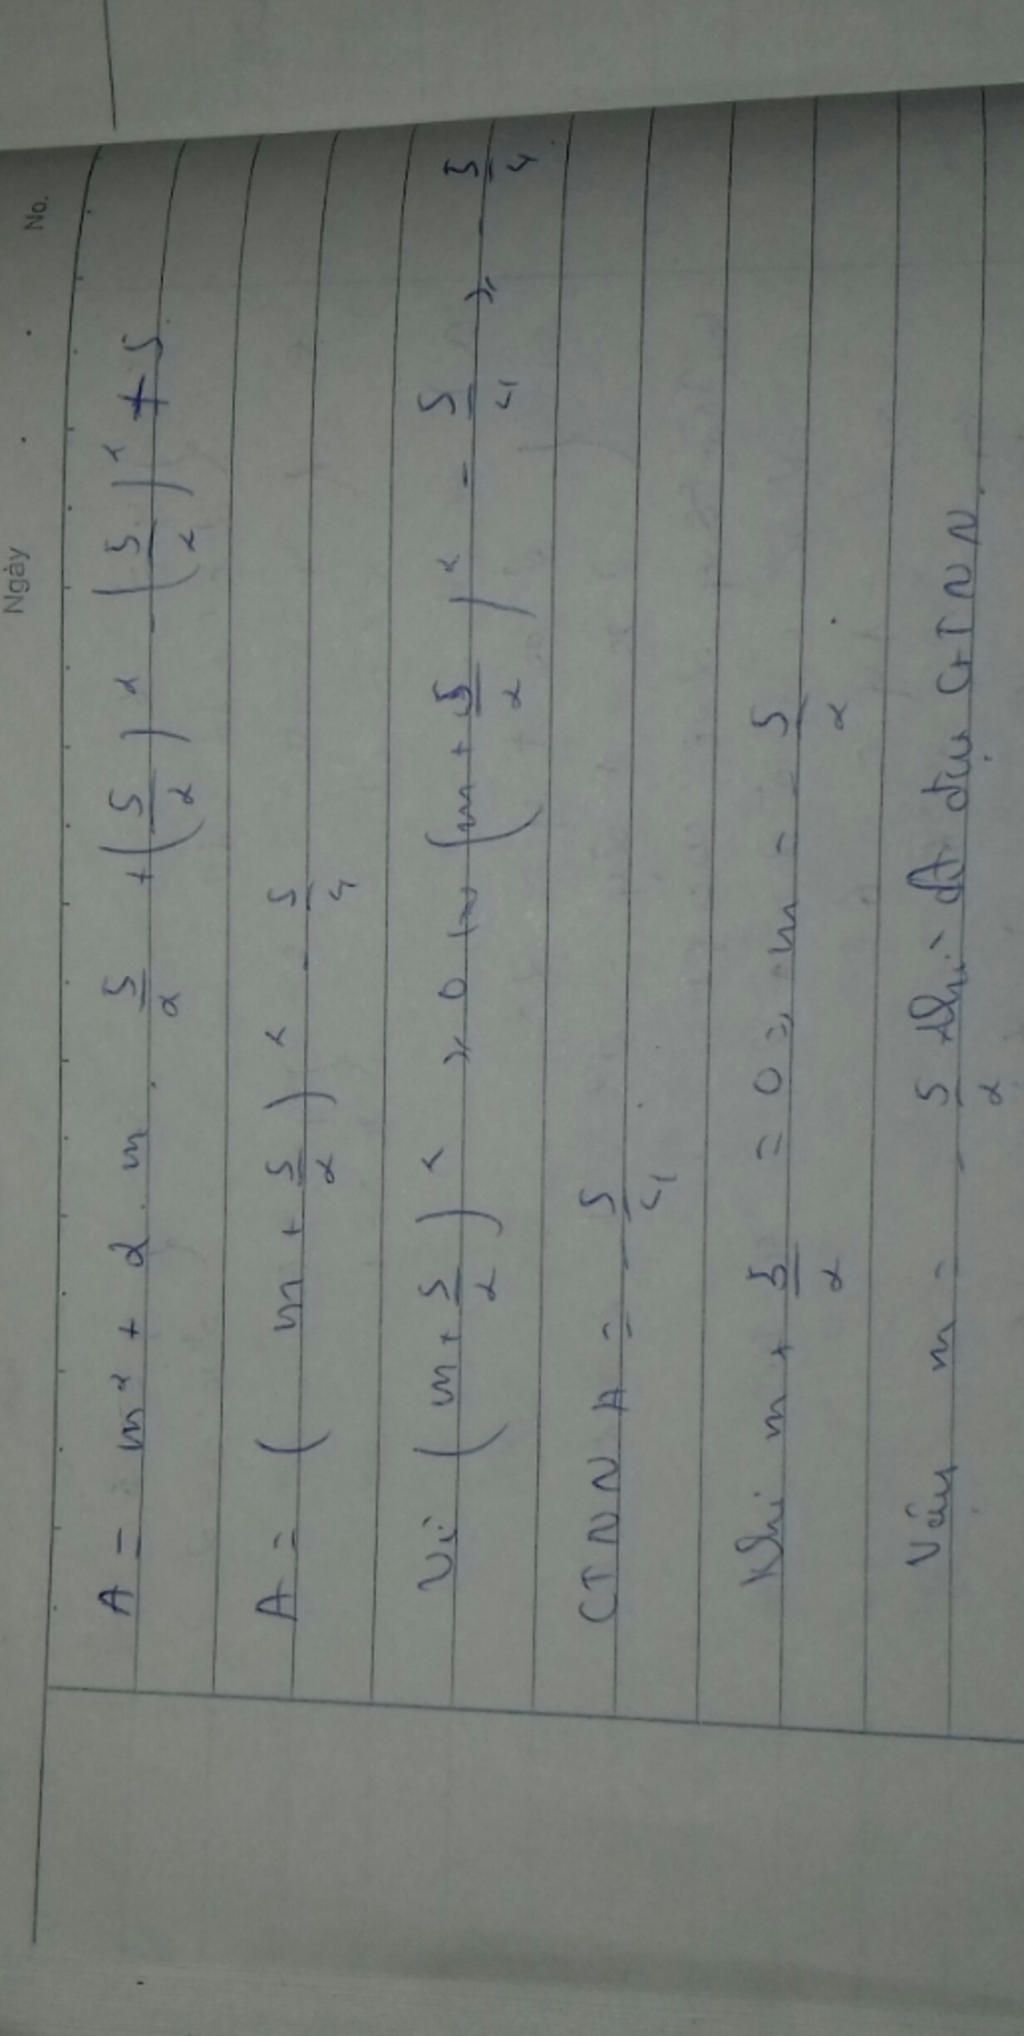 Ngày No.
A = m² + 2.m.5/2 + (5/2)² - (5/2)² + 5
A = (m + 5/2)² - 5/4
Vì (m + 5/2)² ≥ 0 (=) (m + 5/2)² - 5/4 ≥ - 5/4
GTNN A = - 5/4
Khi m + 5/2 = 0 => m = - 5/2
Vậy m = - 5/2 thì A đạt GTNN.